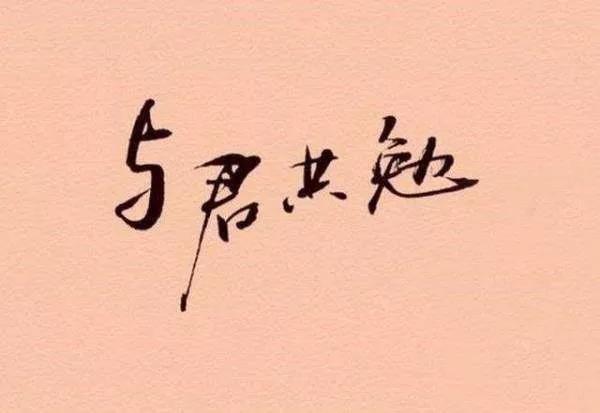 与君共勉